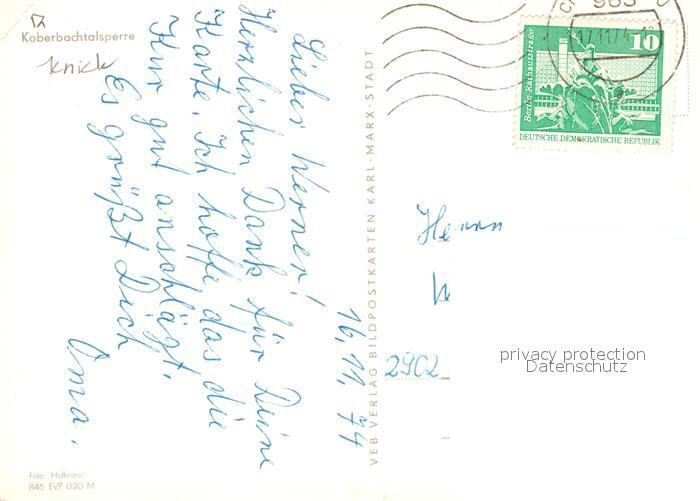 Koberbachtalsperre
knick
16.11.74
Lieber Werner!
Herzlichen Dank für Deine
Karte. Ich hoffe, das die
Kur gut anschlägt.
Es grüßt Dich
Oma.
Foto: Hoffmann
846 EVP 0,20 M
VEB VERLAG BILDPOSTKARTEN KARL-MARX-STADT
963
17.11.74
Berlin-Rathausstraße
10
DEUTSCHE DEMOKRATISCHE REPUBLIK
Herrn
W
2902
privacy protection
Datenschutz